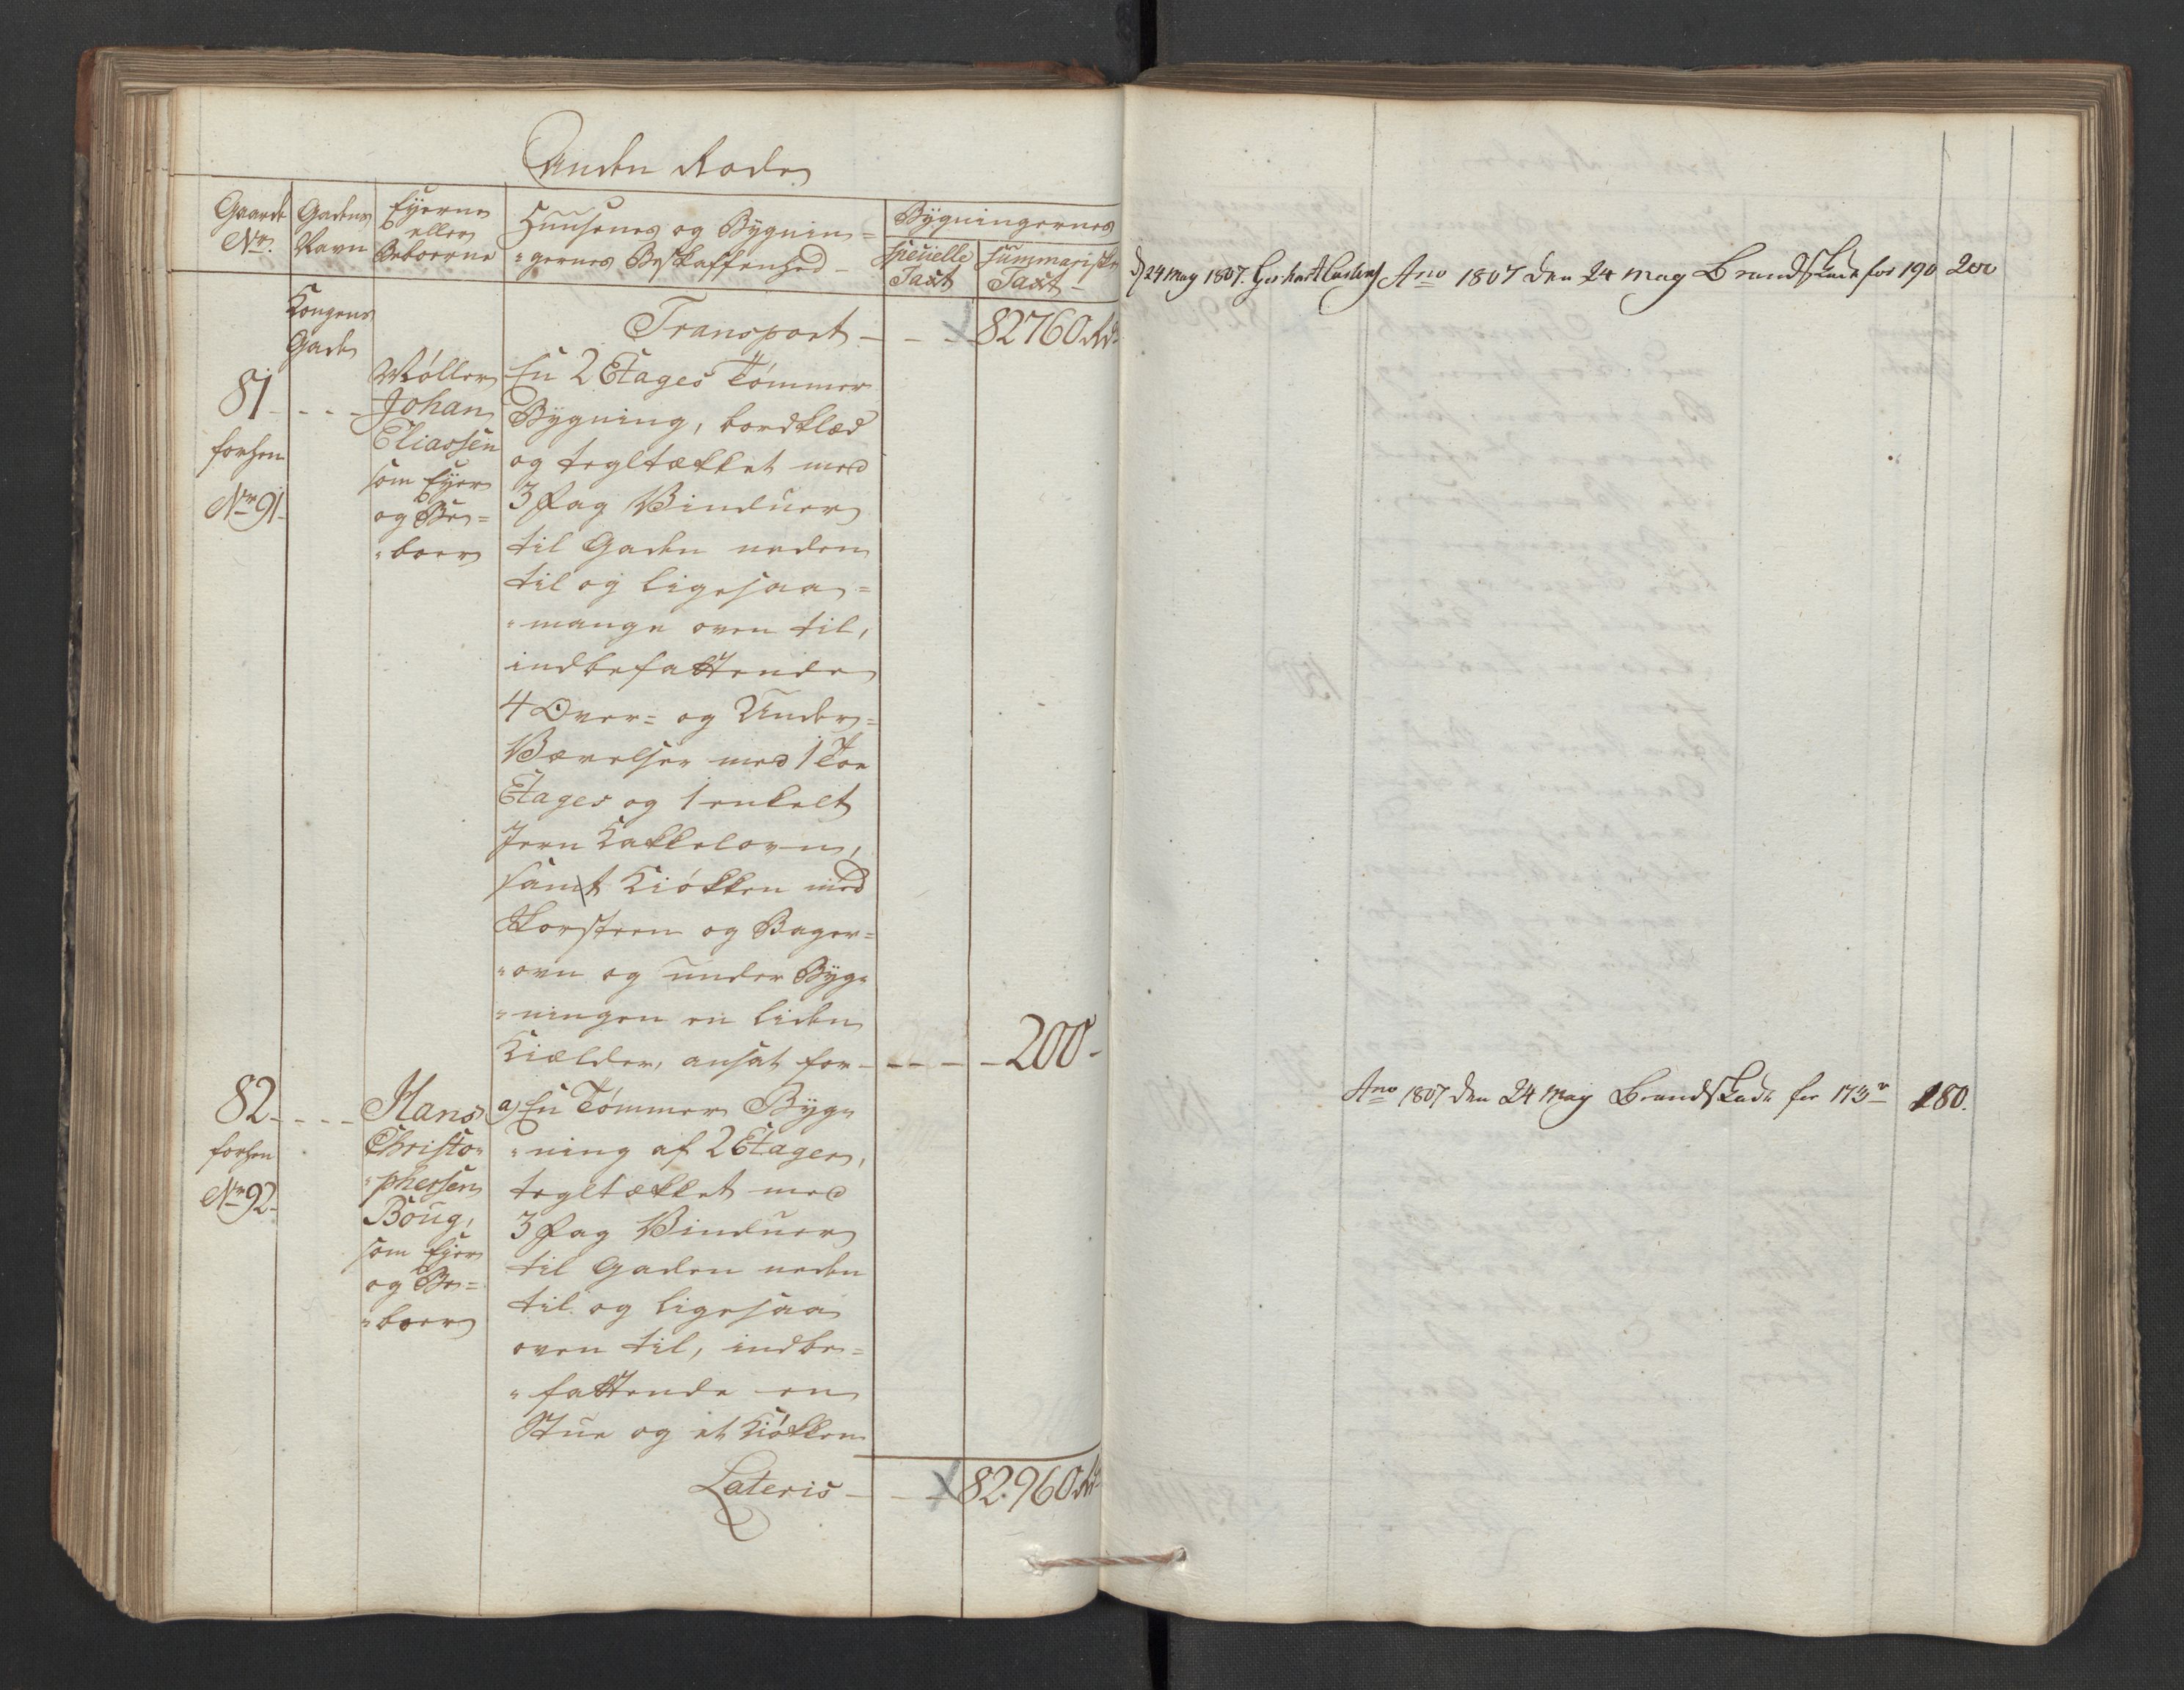 Anden Rode
Gaarde Nr.
Gadens Navn
Eyerne eller Beboerne
Huusenes og Bygnin=
=gernes Beskaffenhed
Bygningernes
specielle Taxt
summariske Taxt
Kongens
Gade
Transport - - - 82760 Rd
81 - - -
forhen
Nr 91 -
Møller
Johan
Eliassen
som Eyer
og Be=
=boer
En 2 Etages Tømmer
Bygning, bordklæd
og tegltækket med
3 Fag Vinduer
til Gaden neden
til og ligesaa=
=mange oven til,
indbefattende
4 Over= og Under=
Værelser med 1 Toe
Etages og 1 enkelt
Jern Kakkelovn,
samt Kiøkken med
Skorsteen og Bager=
=ovn og under Byg=
=ningen en liden
Kielder, ansat for - - - 200 -
82 - - - -
forhen
Nr 92 -
Hans
Christo=
=phersen
Boug,
som Ejer
og Be=
=boer
a) En Tømmer Byg=
=ning af 2 Etager,
tegltækket med
3 Fag Vinduer
til Gaden neden
til og ligesaa
oven til, indbe=
=fattende en
Stue og et Kiøkken
Lateris - - - 82960 Rd
24 May 1807. Gerhart Ano 1807 den 24 May Brandskade for 190 200
Ano 1807 den 24 May Brandskade for 173 180.